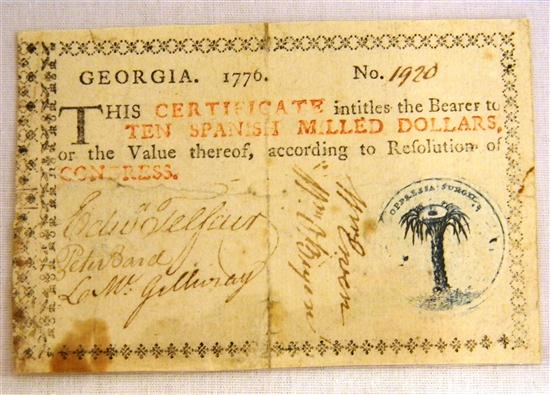 GEORGIA. 1776. No. 1920
THIS CERTIFICATE intitles the Bearer to
TEN SPANISH MILLED DOLLARS,
or the Value thereof, according to Resolution of
CONGRESS.
Edwd. Telfair
Peter Bard
L. McGillivray
Wm. O'Bryen
Wm Ewen
OPPRESSA SURGIT